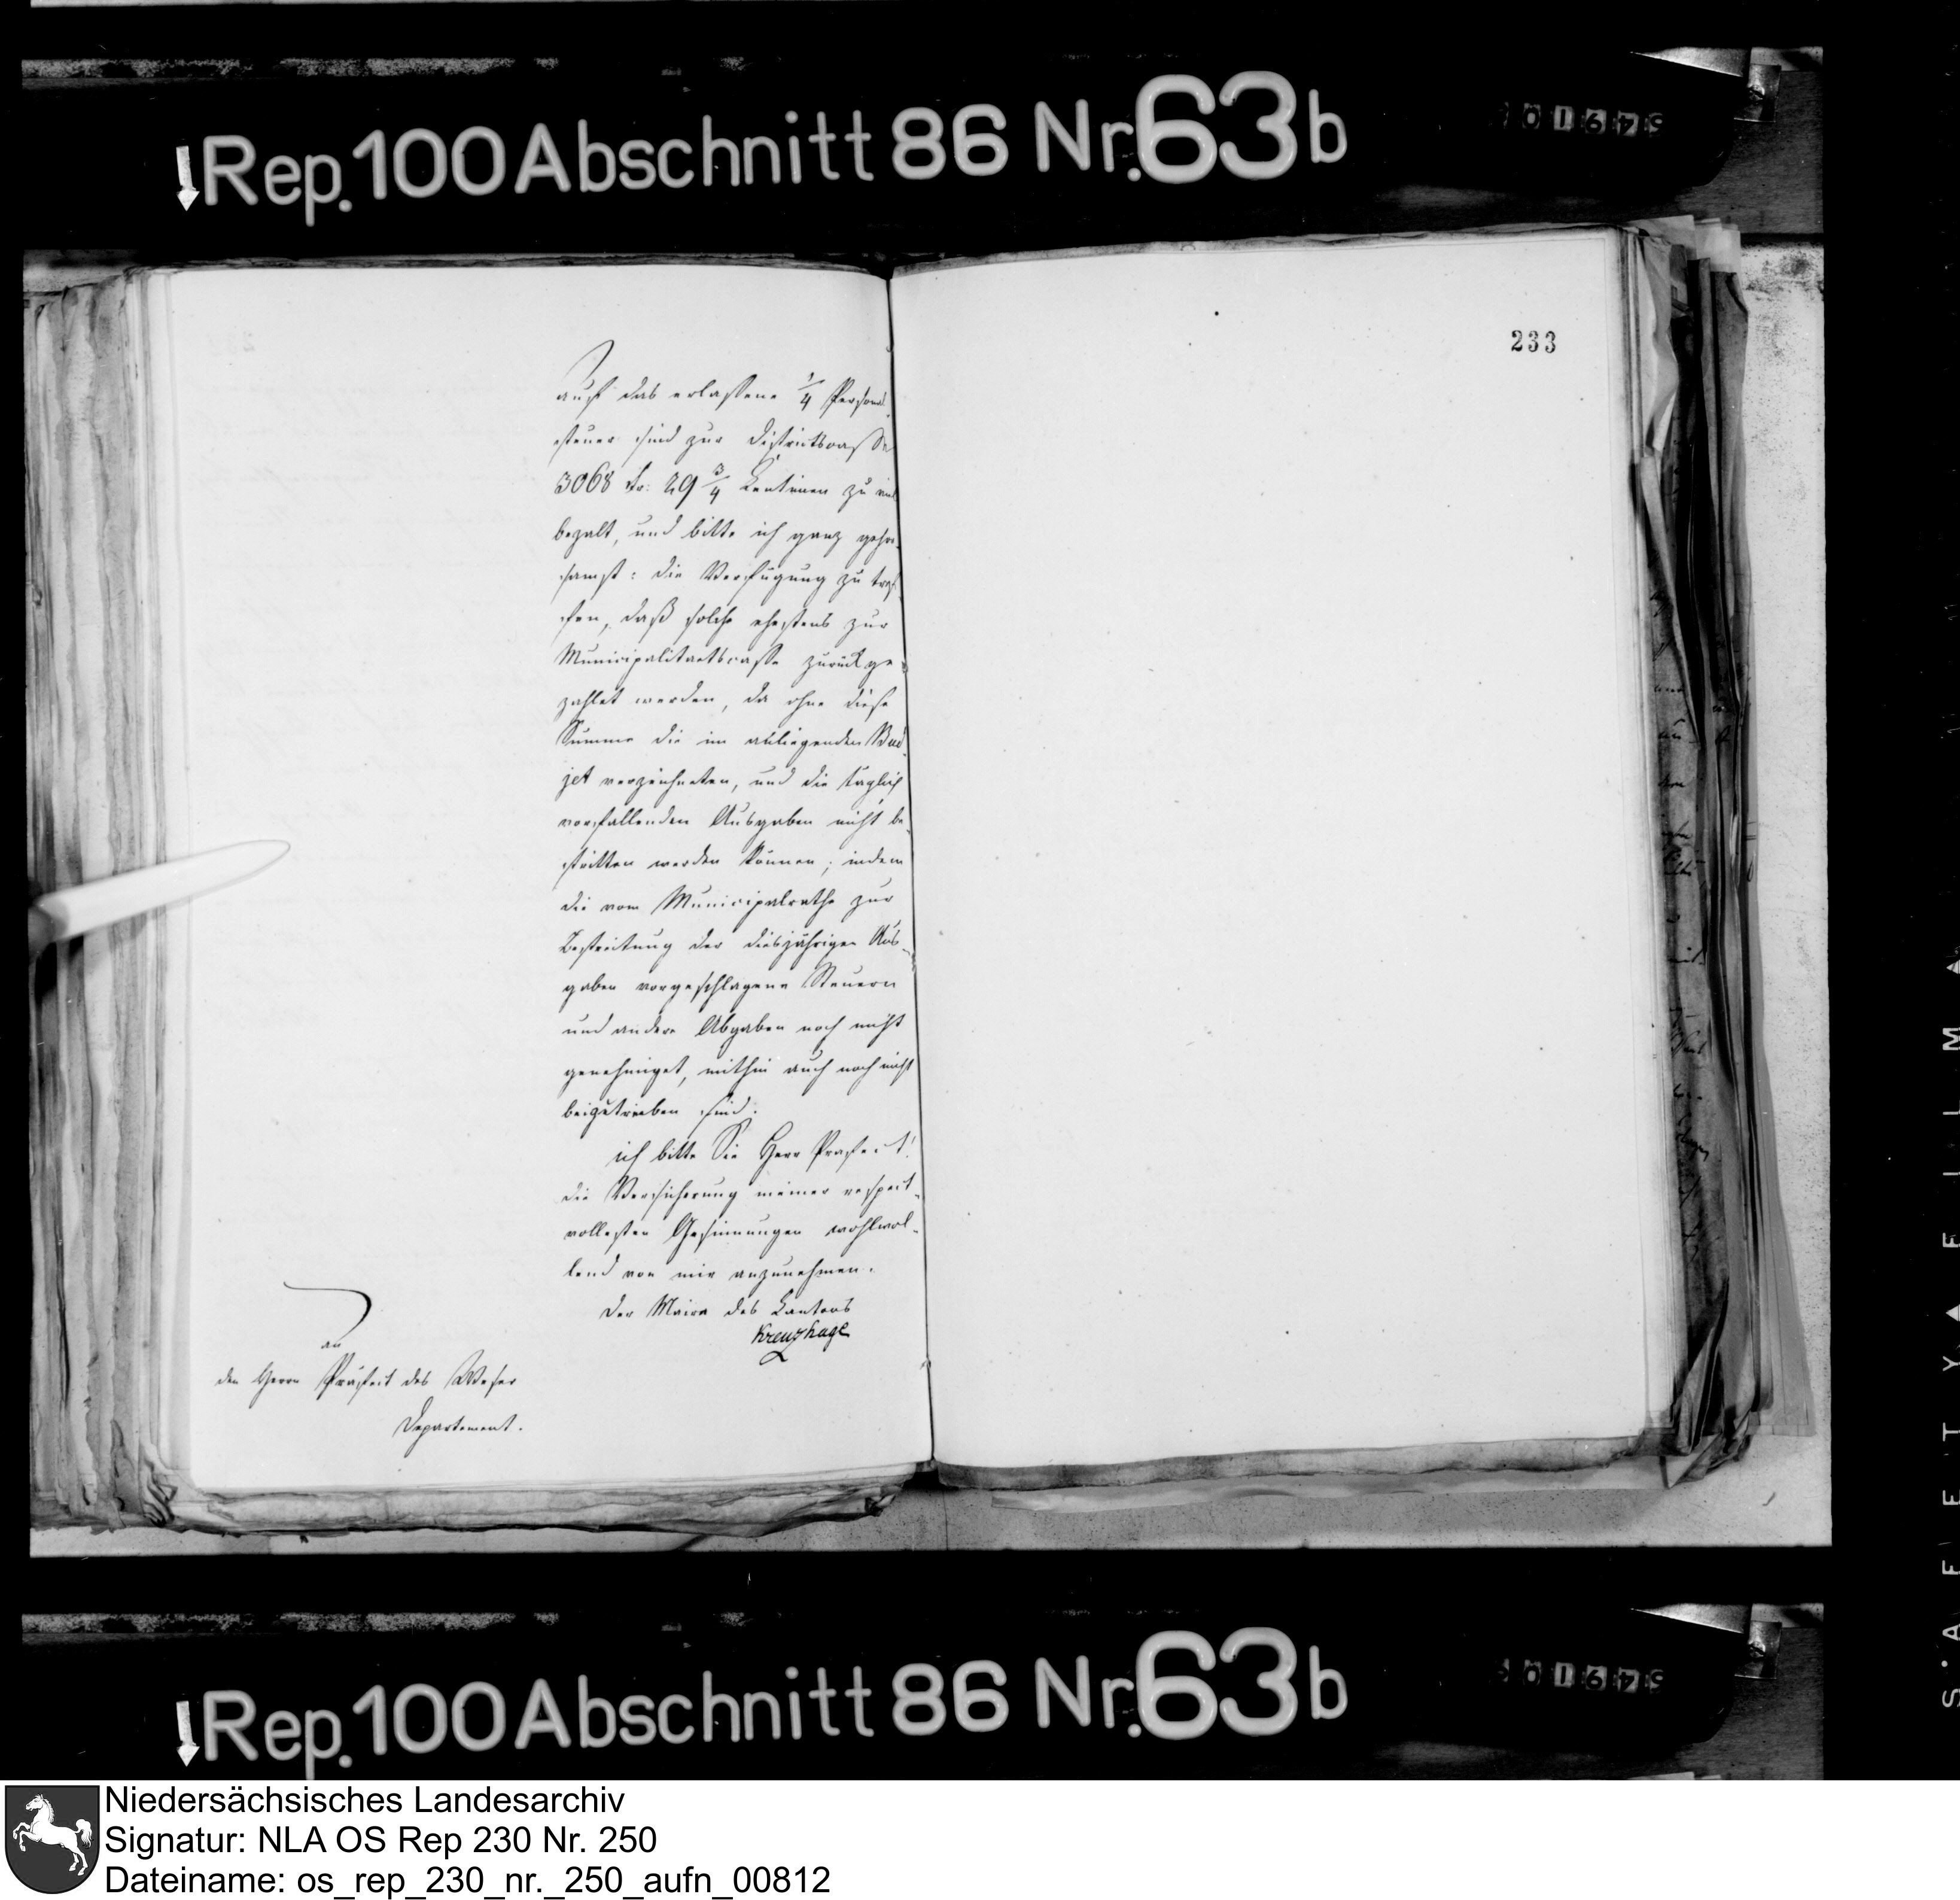 Rep. 100 Abschnitt 86 Nr. 63b
233
auf das erlassene 1/4 Personal
steuer sind zur Districtscasse
3068 Fr: 29 3/4 Centimen zu viel
bezalt, und bitte ich ganz gehor-
samst: die Verfügung zu tref
fen, daß solche ehestens zur
Municipalitaetscasse zurückge-
zahlet werden, da ohne diese
Summe die im anliegenden Bud
jet verzeichneten, und die täglich
vorfallenden Ausgaben nicht be-
stritten werden können; indem
die vom Municipalrathe zur
Bestreitung der diesjährigen Aus-
gaben vorgeschlagene Steuern
und andere Abgaben noch nicht
genehmiget, mithin auch noch nicht
beigetrieben sind.
ich bitte Sie Herr Praefect!
die Versicherung meiner respect-
vollesten Gesinnungen wohlwol-
lend von mir anzunehmen.
Der Maire des Cantons
Kreuzhage
an
den Herrn Präfect des Weser
Departement.
Rep. 100 Abschnitt 86 Nr. 63b
Niedersächsisches Landesarchiv
Signatur: NLA OS Rep 230 Nr. 250
Dateiname: os_rep_230_nr._250_aufn_00812